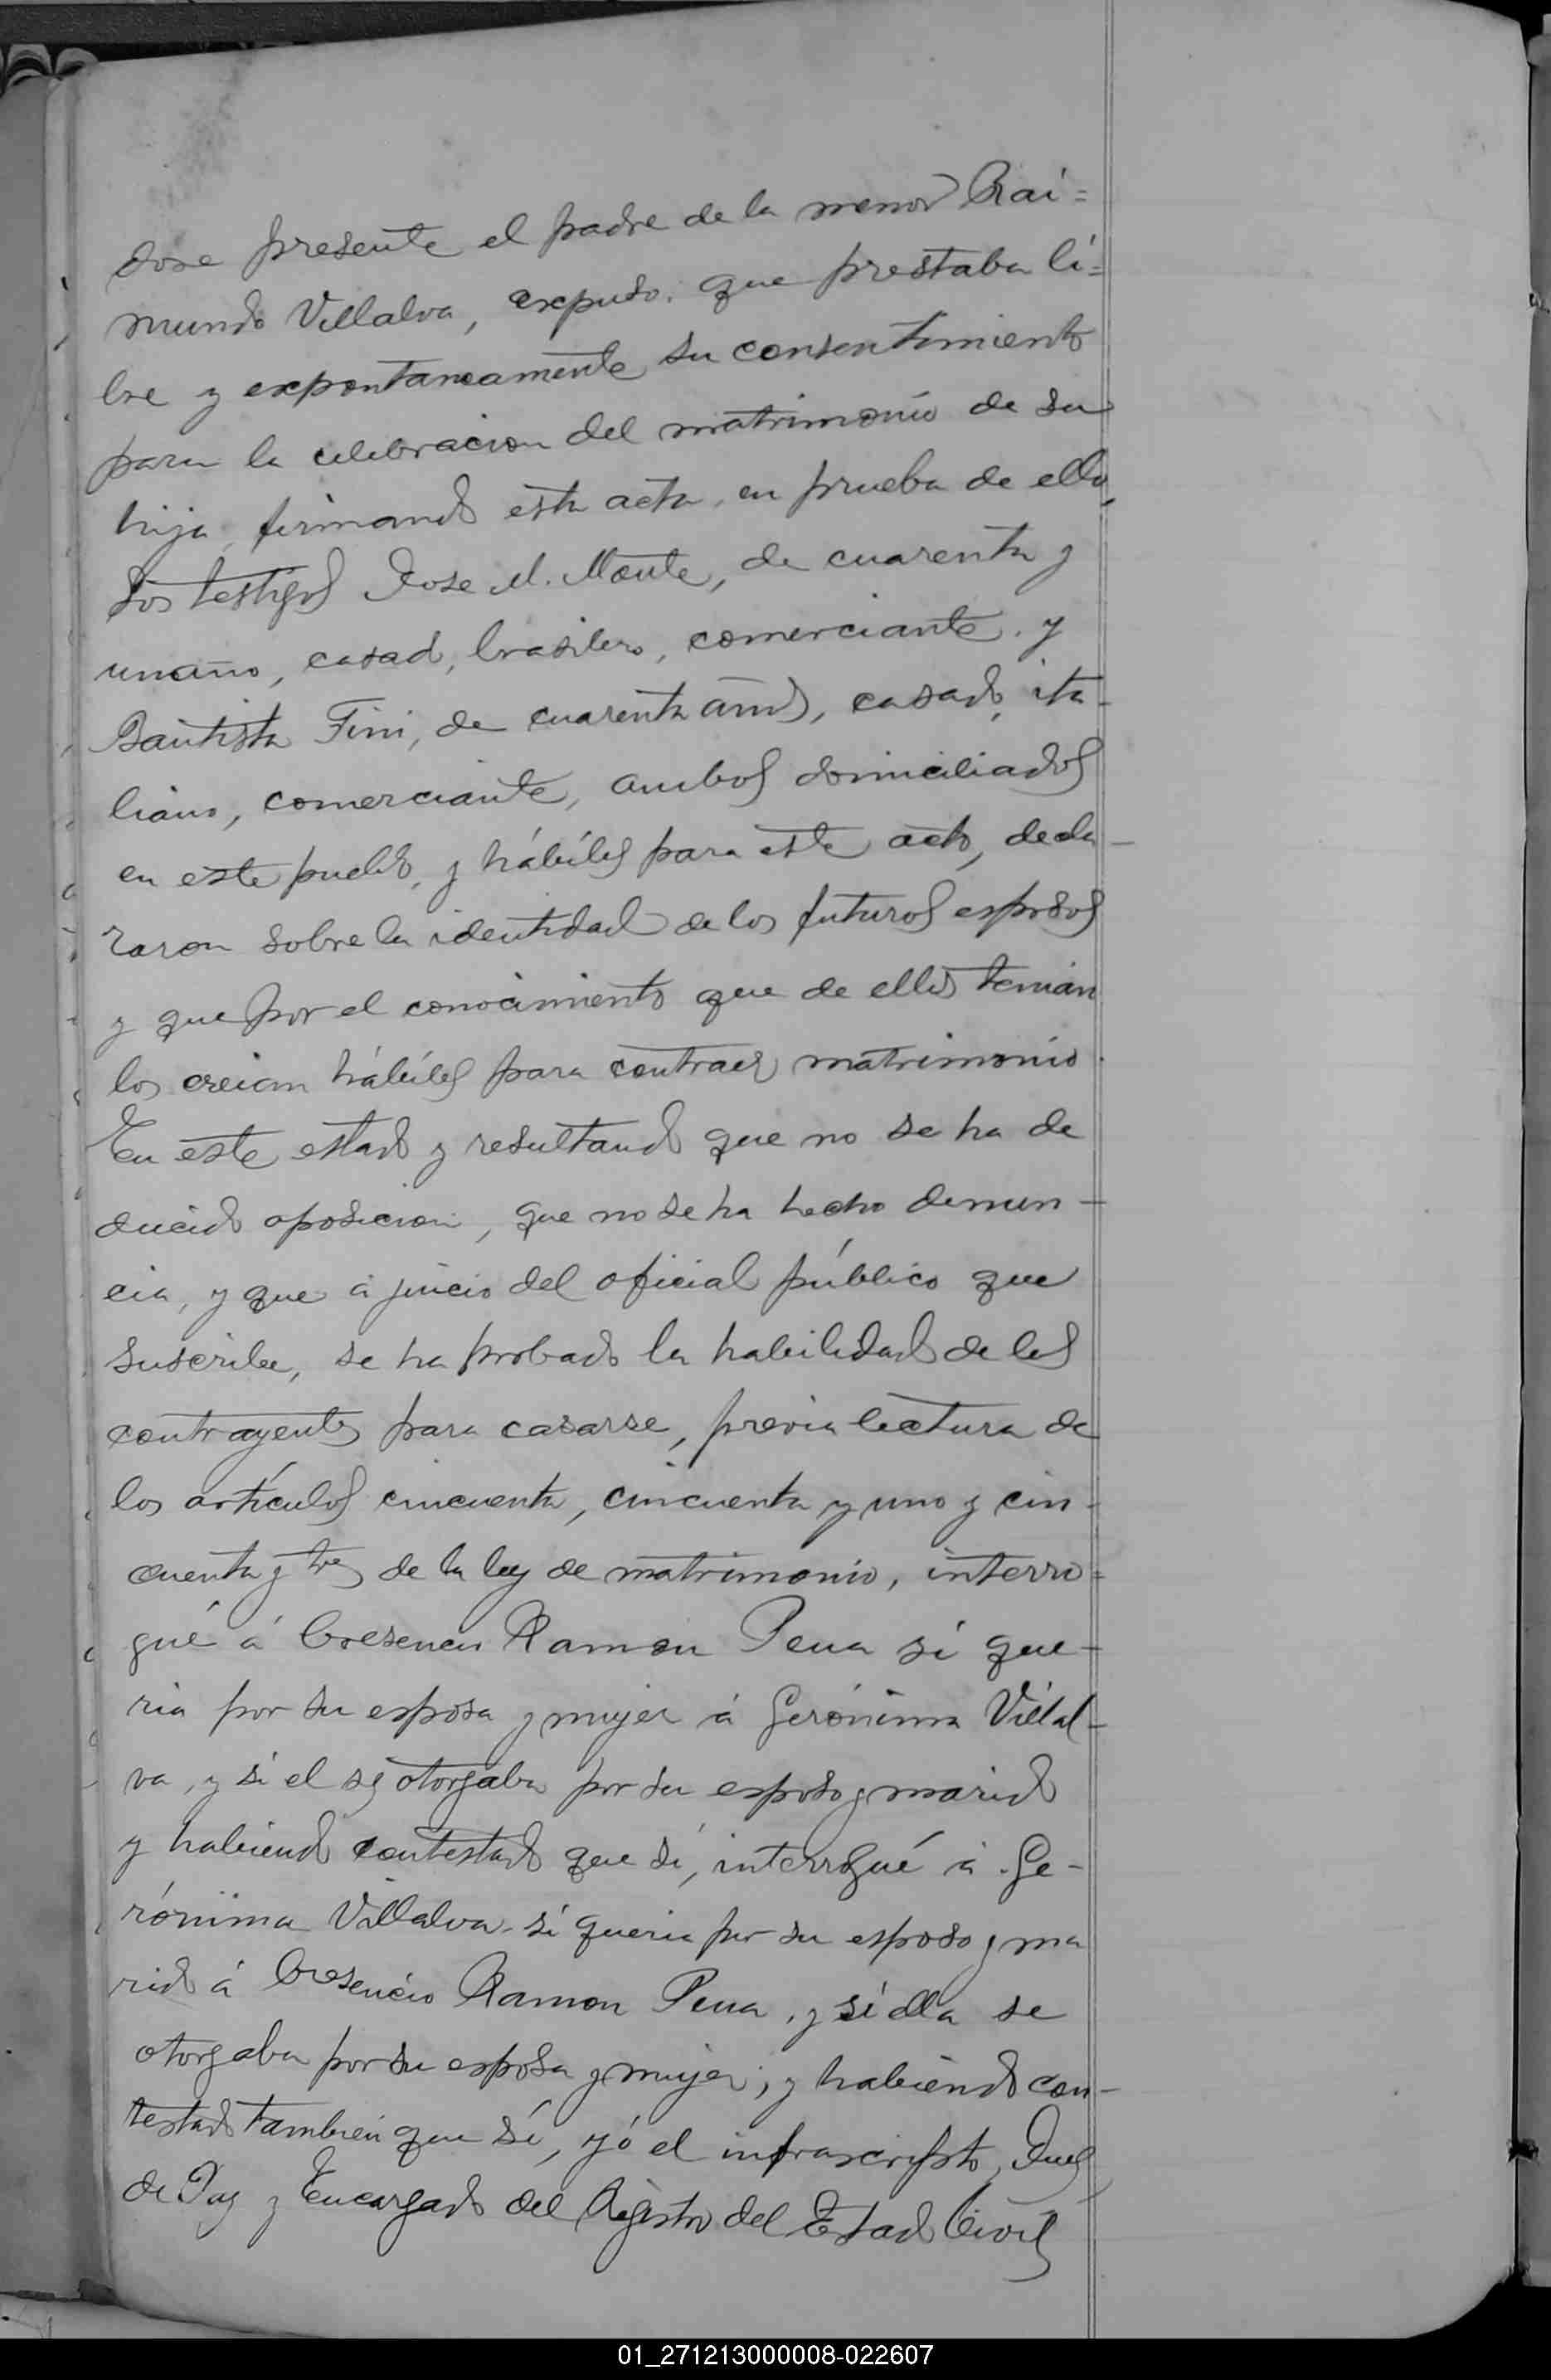 dose presente el padre de la menor Rai=
mundo Villalva, expuso: que prestaba li=
bre y expontaneamente su consentimiento
para la celebracion del matrimonio de su
hija, firmando esta acta, en prueba de ello.
Los testigos Jose M. Monte, de cuarenta y
un año, casado, brasilero, comerciante, y
Bautista Fini, de cuarenta años, casado, ita-
liano, comerciante, ambos domiciliados
en este pueblo, y hábiles para este acto, decla-
raron sobre la identidad de los futuros esposos
y que por el conocimiento que de ellos tenian
los creian hábiles para contraer matrimonio.
En este estado y resultando que no se ha de
ducido oposicion, que no se ha hecho denun-
cia, y que á juicio del oficial público que
suscribe, se ha probado la habilidad de los
contrayentes para casarse, previa lectura de
los artículos cincuenta, cincuenta y uno y cin-
cuenta y tres de la ley de matrimonio, interro=
gué á Cresencio Ramon Pena si que-
ria por su esposa y mujer á Gerónima Villal-
va, y si el se otorgaba por su esposo y marido
y habiendo contestado que sí, interrogué á Ge-
rónima Villalva si queria por su esposo y ma
rido á Cresencio Ramon Pena, y si ella se
otorgaba por su esposa y mujer, y habiendo con-
testado tambien que sí, yó el infrascripto, Juez
de Paz y Encargado del Registro del Estado Civil
01_271213000008-022607